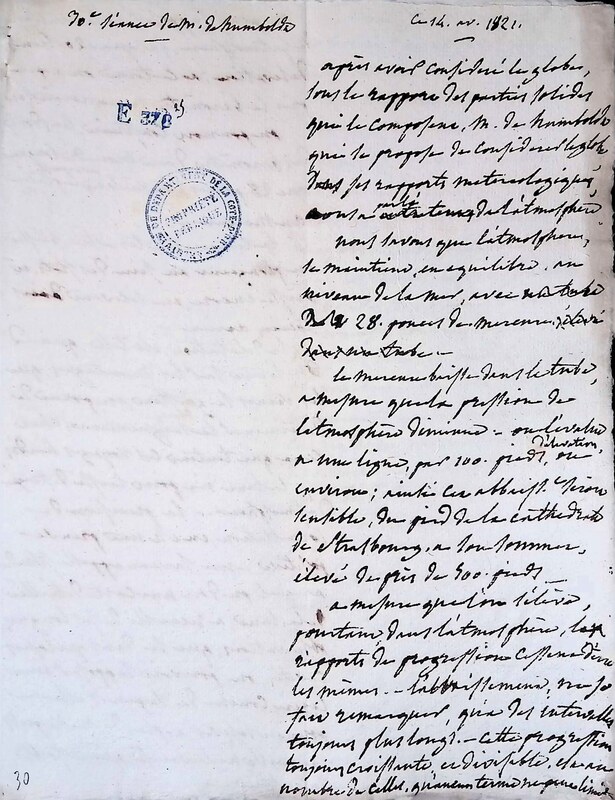 30.e séance de M. de humboldt
ce 14. av. 1821.
E 378 25
PROPRIÉTÉ PUBLIQUE
après avoir consideré le globe,
sous le rapport des parties solides
qui le composent, M. de humboldt
qui se propose de considerer le globe
dans ses rapports meteorologiques,
nous a parlé de l'atmosphère
nous savons que l'atmosphere,
se maintient en equilibre, au
niveau de la mer, avec
28. pouces de mercure, élevé
dans un tube. -
le mercure baisse dans le tube,
a mesure que la pression de
l'atmosphère diminue - on l'évalue
a une ligne, par 100. pieds d'élévation, ou
environ; ainsi cet abbaiss.t seroit
sensible, du pied de la cathédrale
de strasbourg, a son sommet,
élevé de près de 500. pieds -
a mesure que l'on s'élève,
pourtant dans l'atmosphère, les
rapports de progression cessent d'être
les mêmes. - l'abbaissement, ne se
fait remarquer, qu'a des intervalles
toujours plus longs. - cette progression
toujours croissante, et divisible, est au
nombre de celles, qu'aucun terme ne peut limiter
30